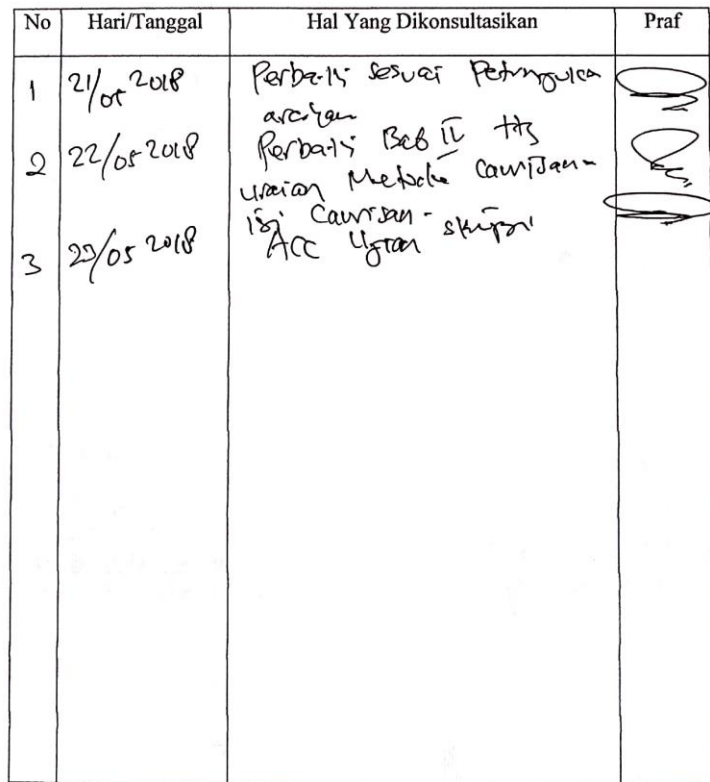 No Hari/Tanggal Hal Yang Dikonsultasikan Praf
1 21/05 2018 Perbaiki sesuai
2 22/05 2018 Perbaiki Bab II ttg
uraian Metode
isi
3 23/05 2018 ACC Ujian skripsi